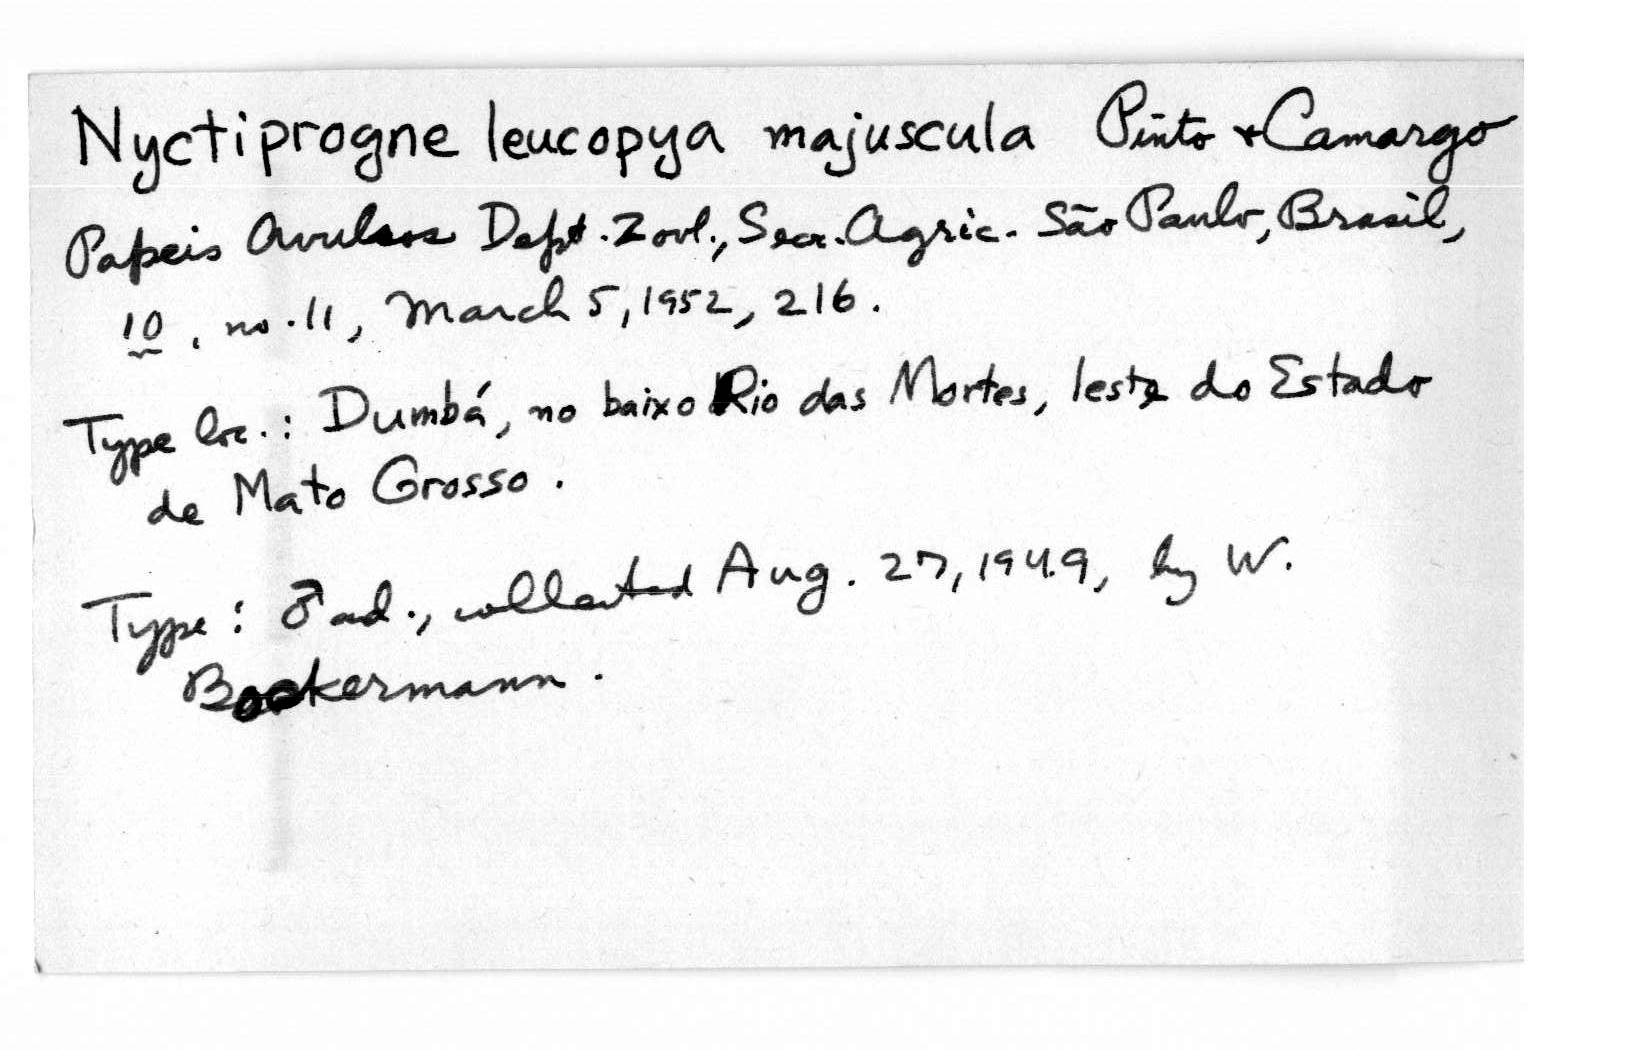 Nyctiprogne leucopya majuscula Pinto + Camargo
Papeis Avulsos Dept. Zool., Secr. Agric. São Paulo, Brasil,
10, no. 11, March 5, 1952, 216.
Type loc.: Dumbá, no baixo Rio das Mortes, leste do Estado
de Mato Grosso.
Type: ♂ ad., collected Aug. 27, 1949, by W.
Bokermann.